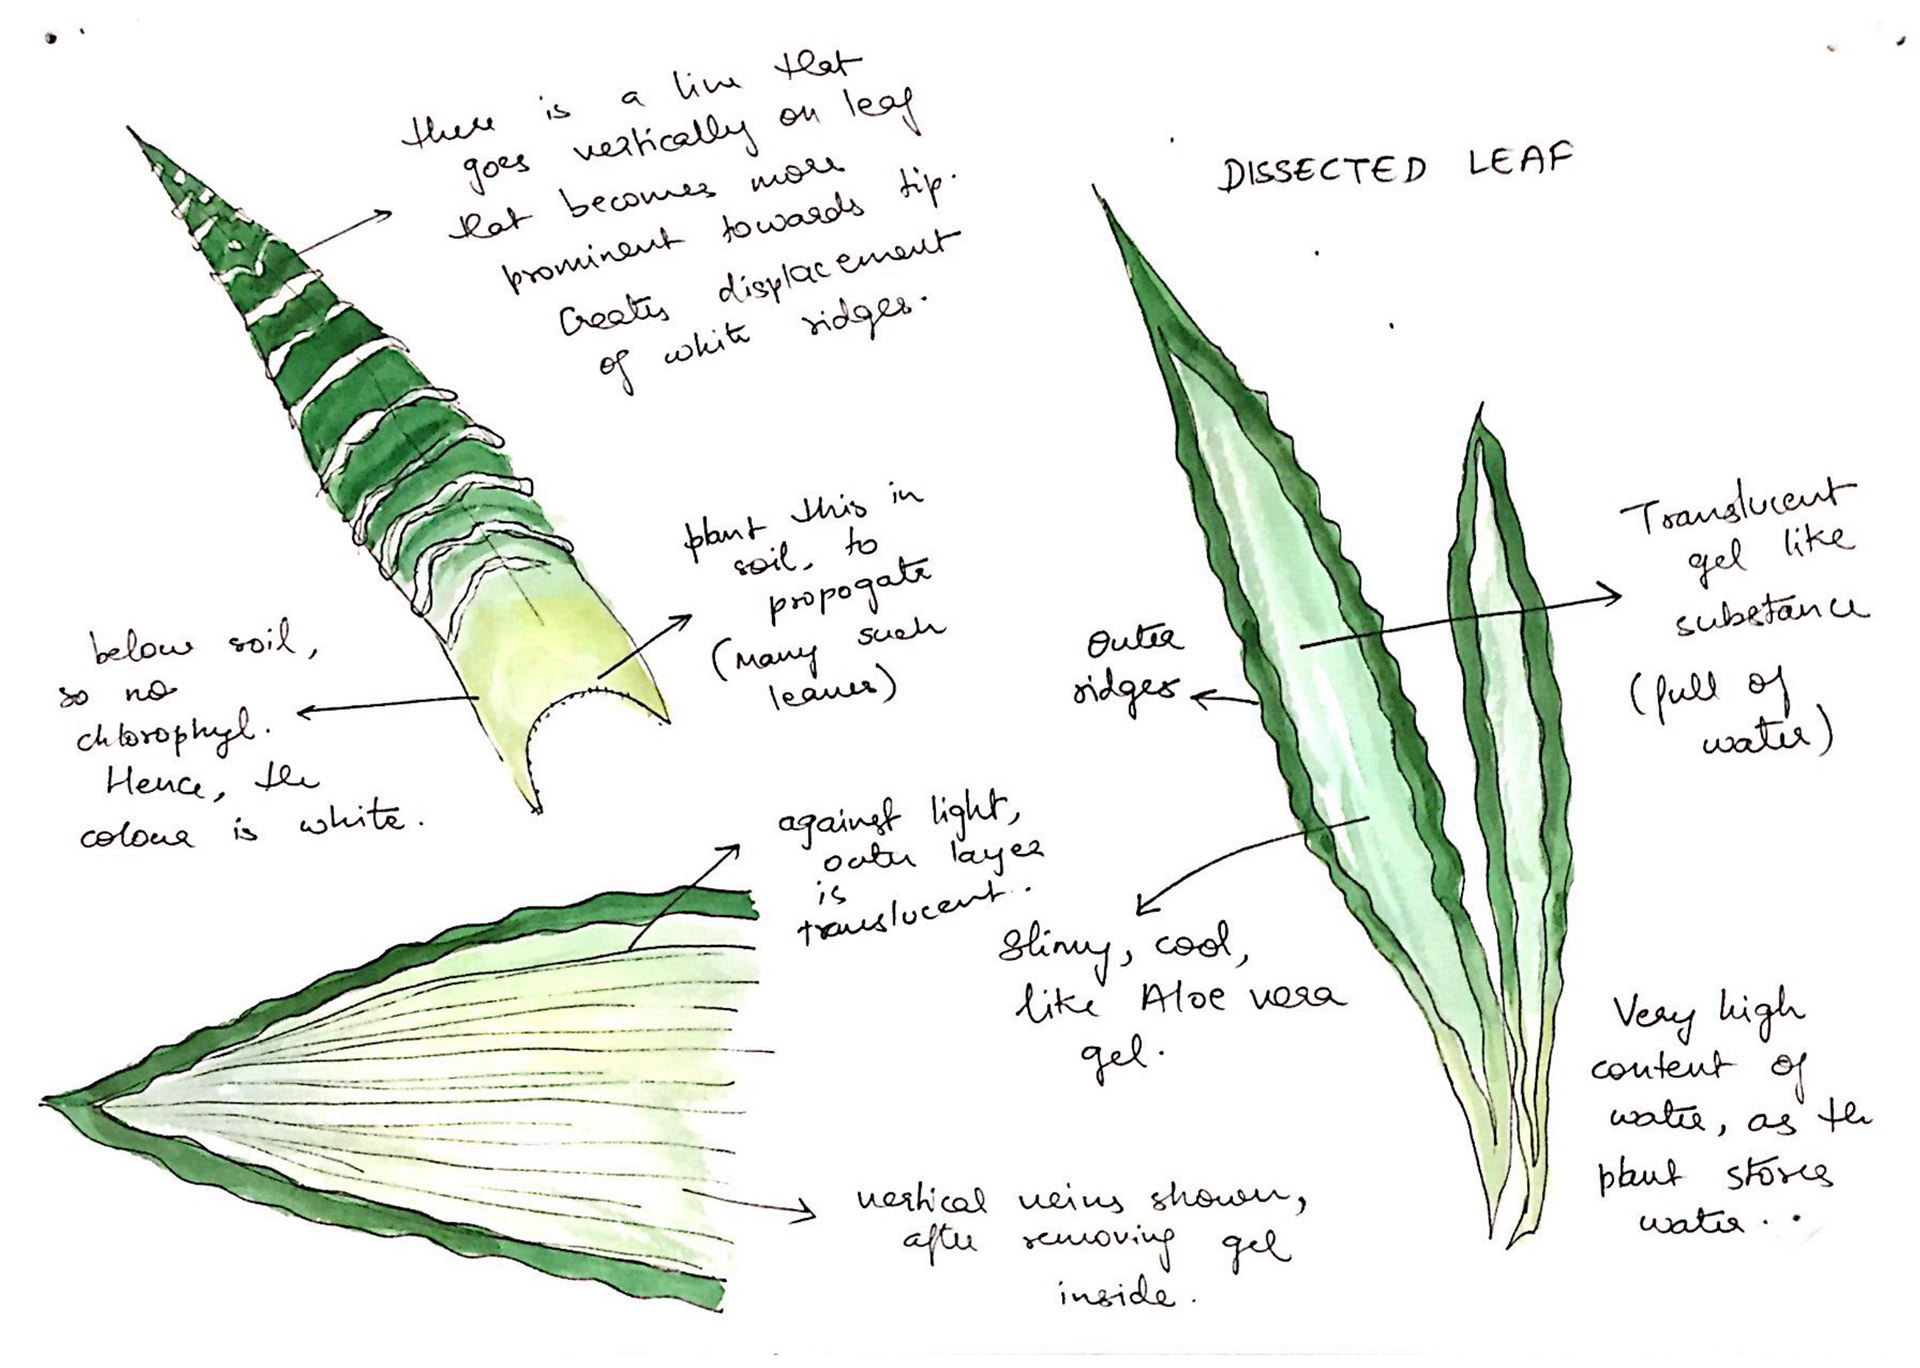 there is a line that
goes vertically on leaf
that becomes more
prominent towards tip.
Creates displacement
of white ridges.
DISSECTED LEAF
plant this in
soil, to
propogate
(many such
leaves)
below soil,
so no
chlorophyl.
Hence, the
colour is white.
Translucent
gel like
substance
(full of
water)
Outer
ridges
against light,
outer layer
is
translucent.
Slimy, cool,
like Aloe vera
gel.
Very high
content of
water, as the
plant stores
water.
vertical veins shown,
after removing gel
inside.